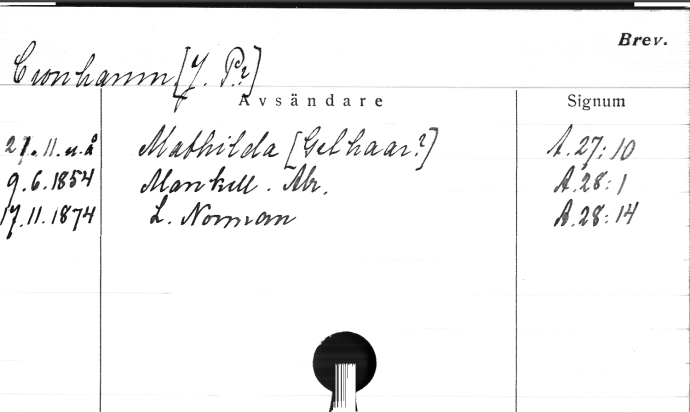 Brev.
Cronhamn [J. P.?]
Avsändare Signum
27.11.u.å Mathilda [Gelhaar?] A.27:10
9.6.1854 Mankell. Abr. A.28:1
17.11.1874 L. Norman A.28:14